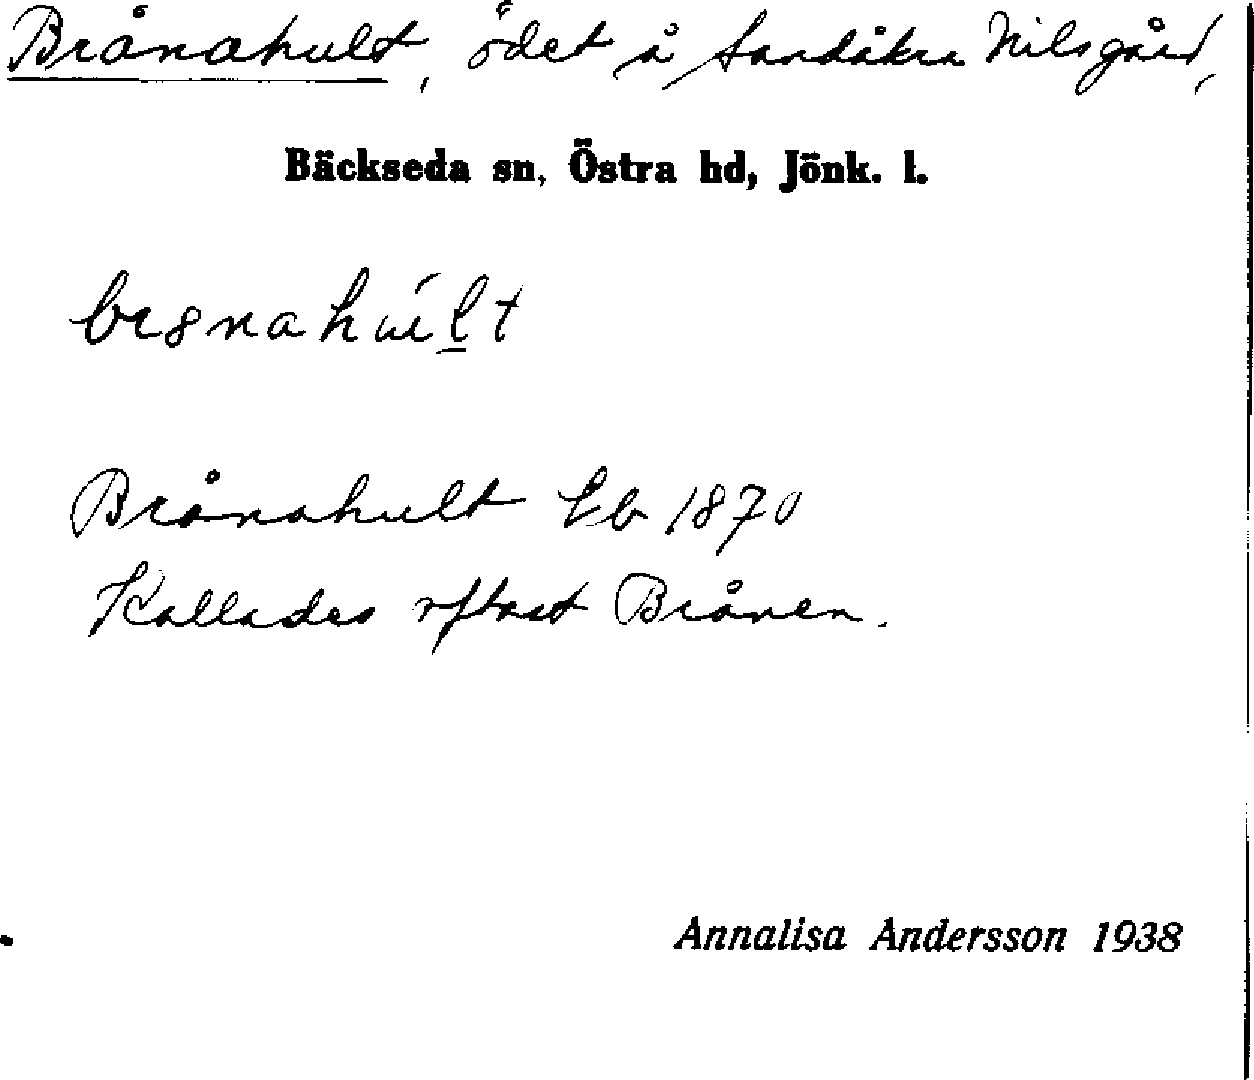 Brånahult, ödet å Sandåkra Nilsgård,
Bäckseda sn, Östra hd, Jönk. l.
Brånahult Eb 1870
Kallades oftast Brånen.
Annalisa Andersson 1938